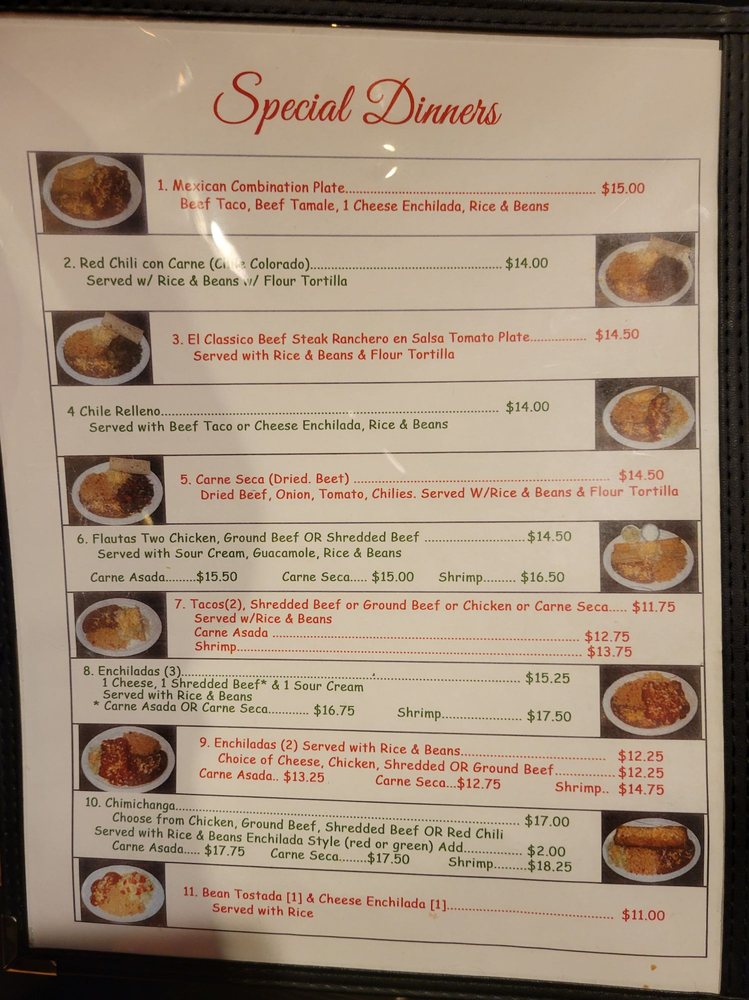 Special Dinners
1. Mexican Combination Plate.......... $15.00
Beef Taco, Beef Tamale, 1 Cheese Enchilada, Rice & Beans
2. Red Chili con Carne (Chile Colorado).......... $14.00
Served w/ Rice & Beans w/ Flour Tortilla
3. El Classico Beef Steak Ranchero en Salsa Tomato Plate.......... $14.50
Served with Rice & Beans & Flour Tortilla
4 Chile Relleno.......... $14.00
Served with Beef Taco or Cheese Enchilada, Rice & Beans
5. Carne Seca (Dried. Beet) .......... $14.50
Dried Beef, Onion, Tomato, Chilies. Served W/Rice & Beans & Flour Tortilla
6. Flautas Two Chicken, Ground Beef OR Shredded Beef ..........$14.50
Served with Sour Cream, Guacamole, Rice & Beans
Carne Asada.........$15.50 Carne Seca..... $15.00 Shrimp......... $16.50
7. Tacos(2), Shredded Beef or Ground Beef or Chicken or Carne Seca..... $11.75
Served w/Rice & Beans
Carne Asada .......... $12.75
Shrimp.......... $13.75
8. Enchiladas (3).......... $15.25
1 Cheese, 1 Shredded Beef* & 1 Sour Cream
Served with Rice & Beans
* Carne Asada OR Carne Seca............ $16.75 Shrimp.......... $17.50
9. Enchiladas (2) Served with Rice & Beans.......... $12.25
Choice of Cheese, Chicken, Shredded OR Ground Beef.......... $12.25
Carne Asada.. $13.25 Carne Seca...$12.75 Shrimp.. $14.75
10. Chimichanga.......... $17.00
Choose from Chicken, Ground Beef, Shredded Beef OR Red Chili
Served with Rice & Beans Enchilada Style (red or green) Add.......... $2.00
Carne Asada..... $17.75 Carne Seca........$17.50 Shrimp.........$18.25
11. Bean Tostada [1] & Cheese Enchilada [1].......... $11.00
Served with Rice